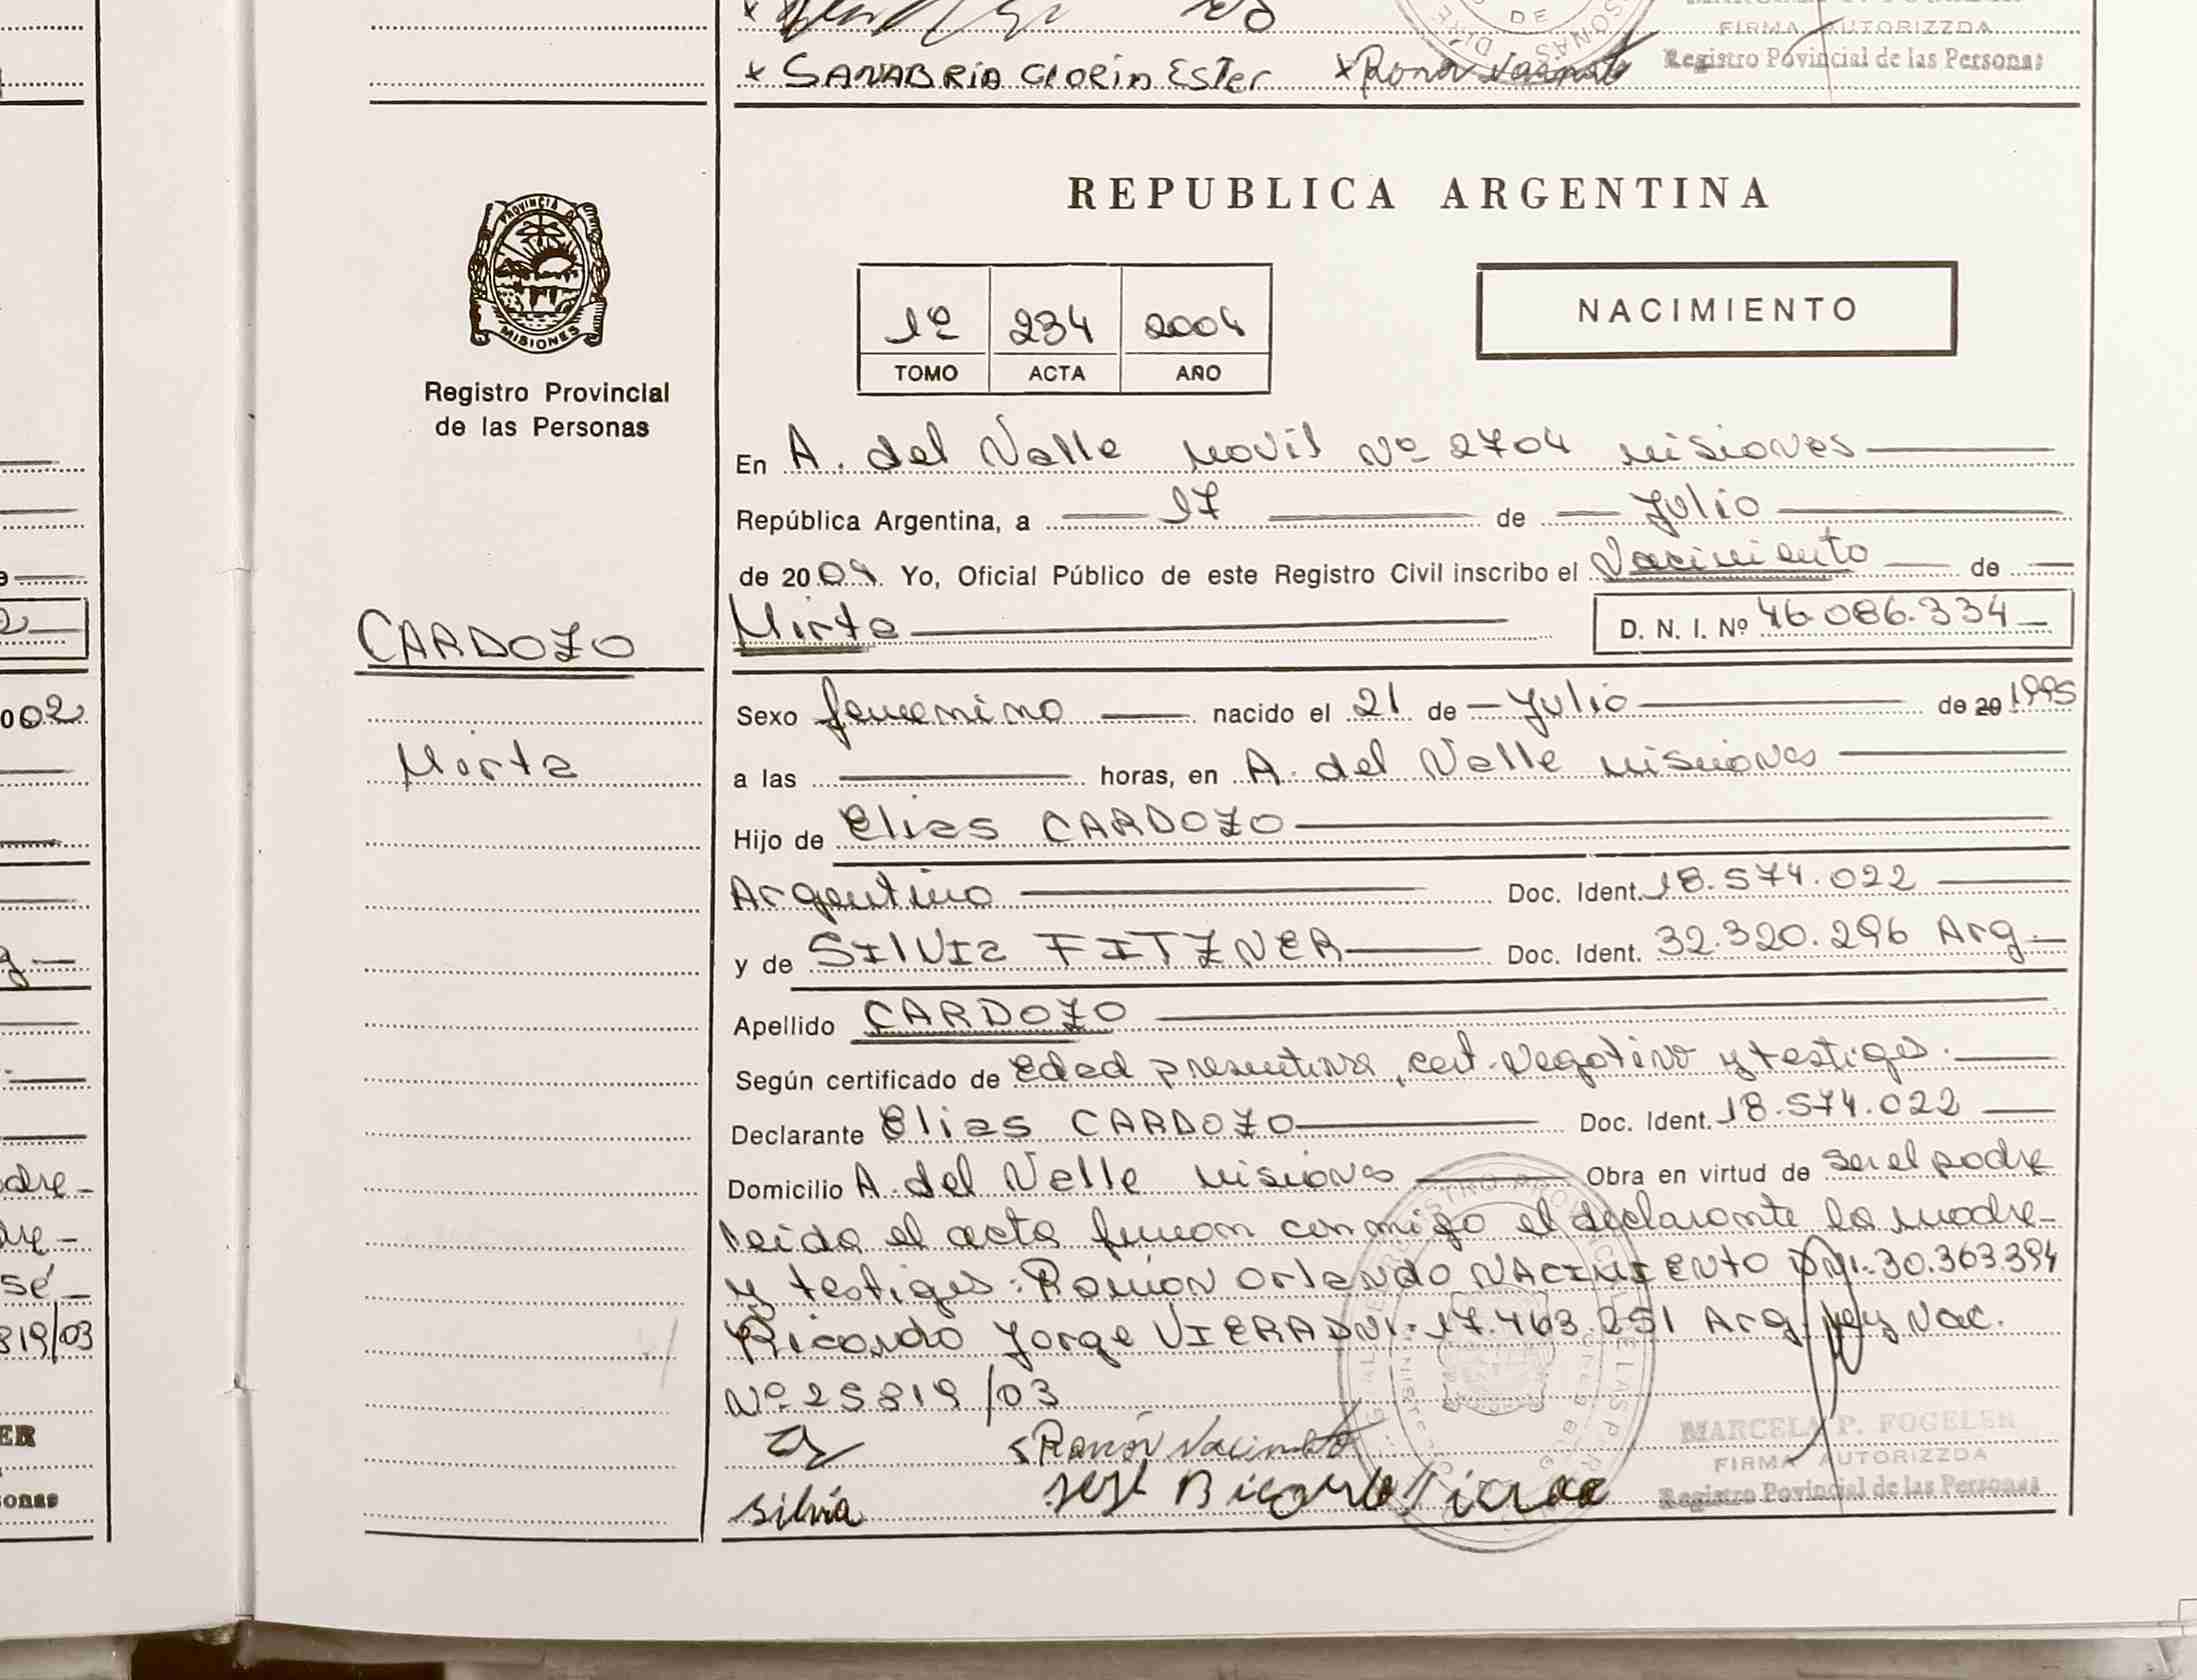 SANABRIA GLORIA Ester
FIRMA AUTORIZZDA
Registro Povincial de las Personas
REPUBLICA ARGENTINA
PROVINCIA DE MISIONES
Registro Provincial
de las Personas
1º 234 2004
TOMO ACTA AÑO
NACIMIENTO
En A. del Valle Movil Nº 2704 Misiones
República Argentina, a 17 de Julio
de 2004. Yo, Oficial Público de este Registro Civil inscribo el Nacimiento de
CARDOZO
Mirta
D. N. I. Nº 46.086.334
Sexo femenino nacido el 21 de Julio de 20 1995
Mirta
a las horas, en A. del Valle Misiones
Hijo de Elias CARDOZO
Argentino Doc. Ident. 18.574.022
y de SILVIa FITZNER Doc. Ident. 32.320.296 Arg
Apellido CARDOZO
Según certificado de Edad presuntiva, cert. Negativo y testigos.
Declarante Elias CARDOZO Doc. Ident. 18.574.022
Domicilio A. del Valle Misiones Obra en virtud de ser el padre
leida el acta firman conmigo el declarante la madre
y testigos: Ramon Orlando NACIMIENTO DNI. 30.363.394
Ricardo Jorge VIERA DNI. 17.463.251 Arg. Ley Nac.
Nº 25819/03
Ramón Nacimiento
silvia
MARCELA P. FOGELER
FIRMA AUTORIZZDA
Registro Povincial de las Personas
002
dre
sé
819/03
ER
sonas